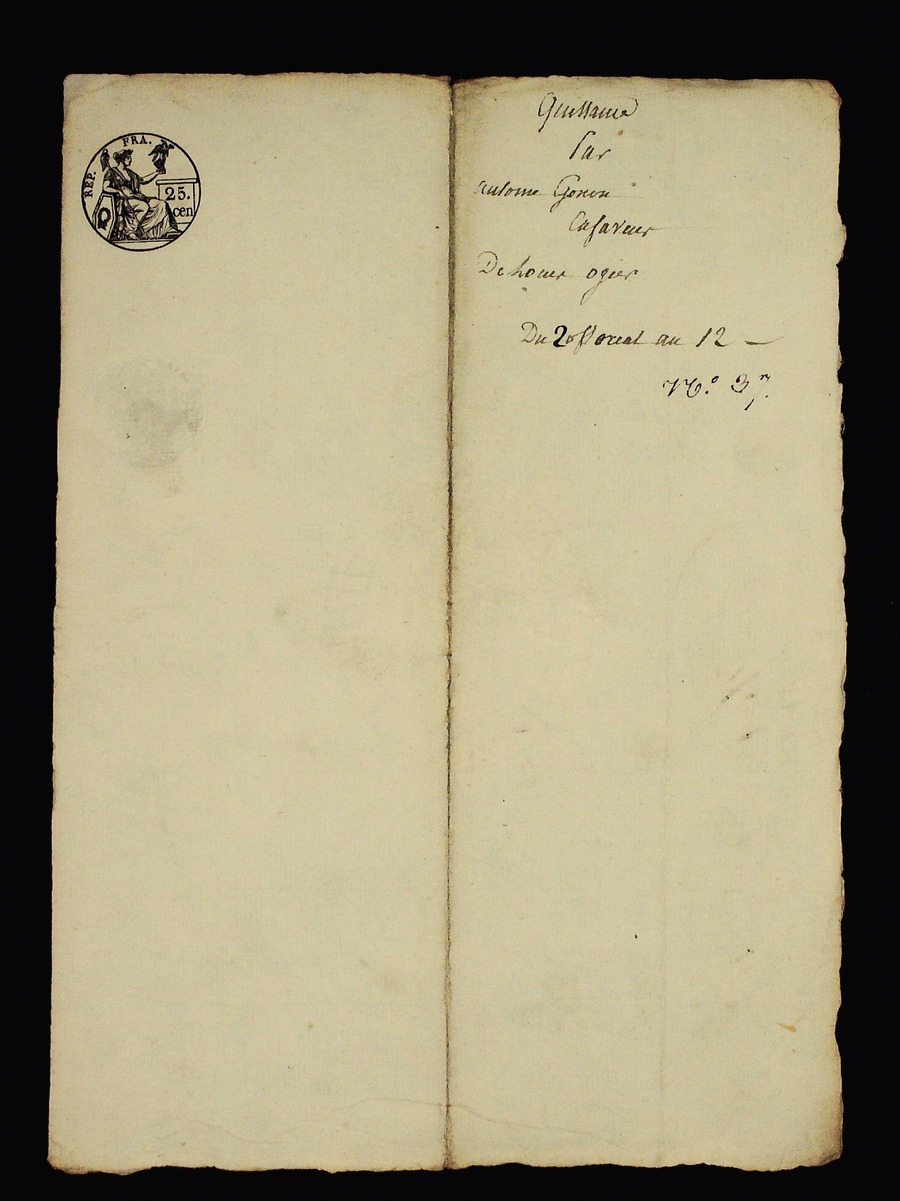 REP. FRA.
25.
cen
Quittance
Par
antoine Gonon
En faveur
De louis ogier
Du 20 floreal an 12 —
N.º 37.